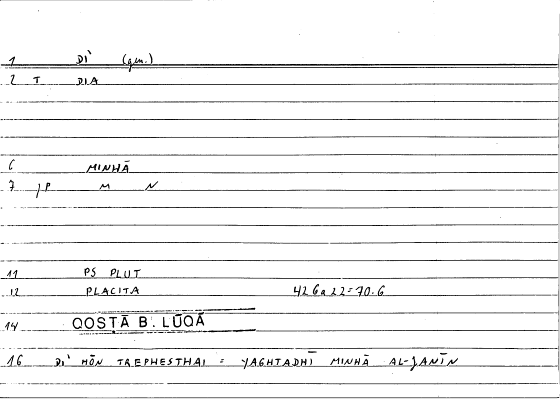 1 DI' (gen.)
2 T DIA
6 MINHĀ
7 JP M N
11 PS PLUT
12 PLACITA 426a22=70.6
14 QOSṬĀ B. LŪQĀ
16 DI' HŌN TREPHESTHAI = YAGHTADHĪ MINHĀ AL-JANĪN